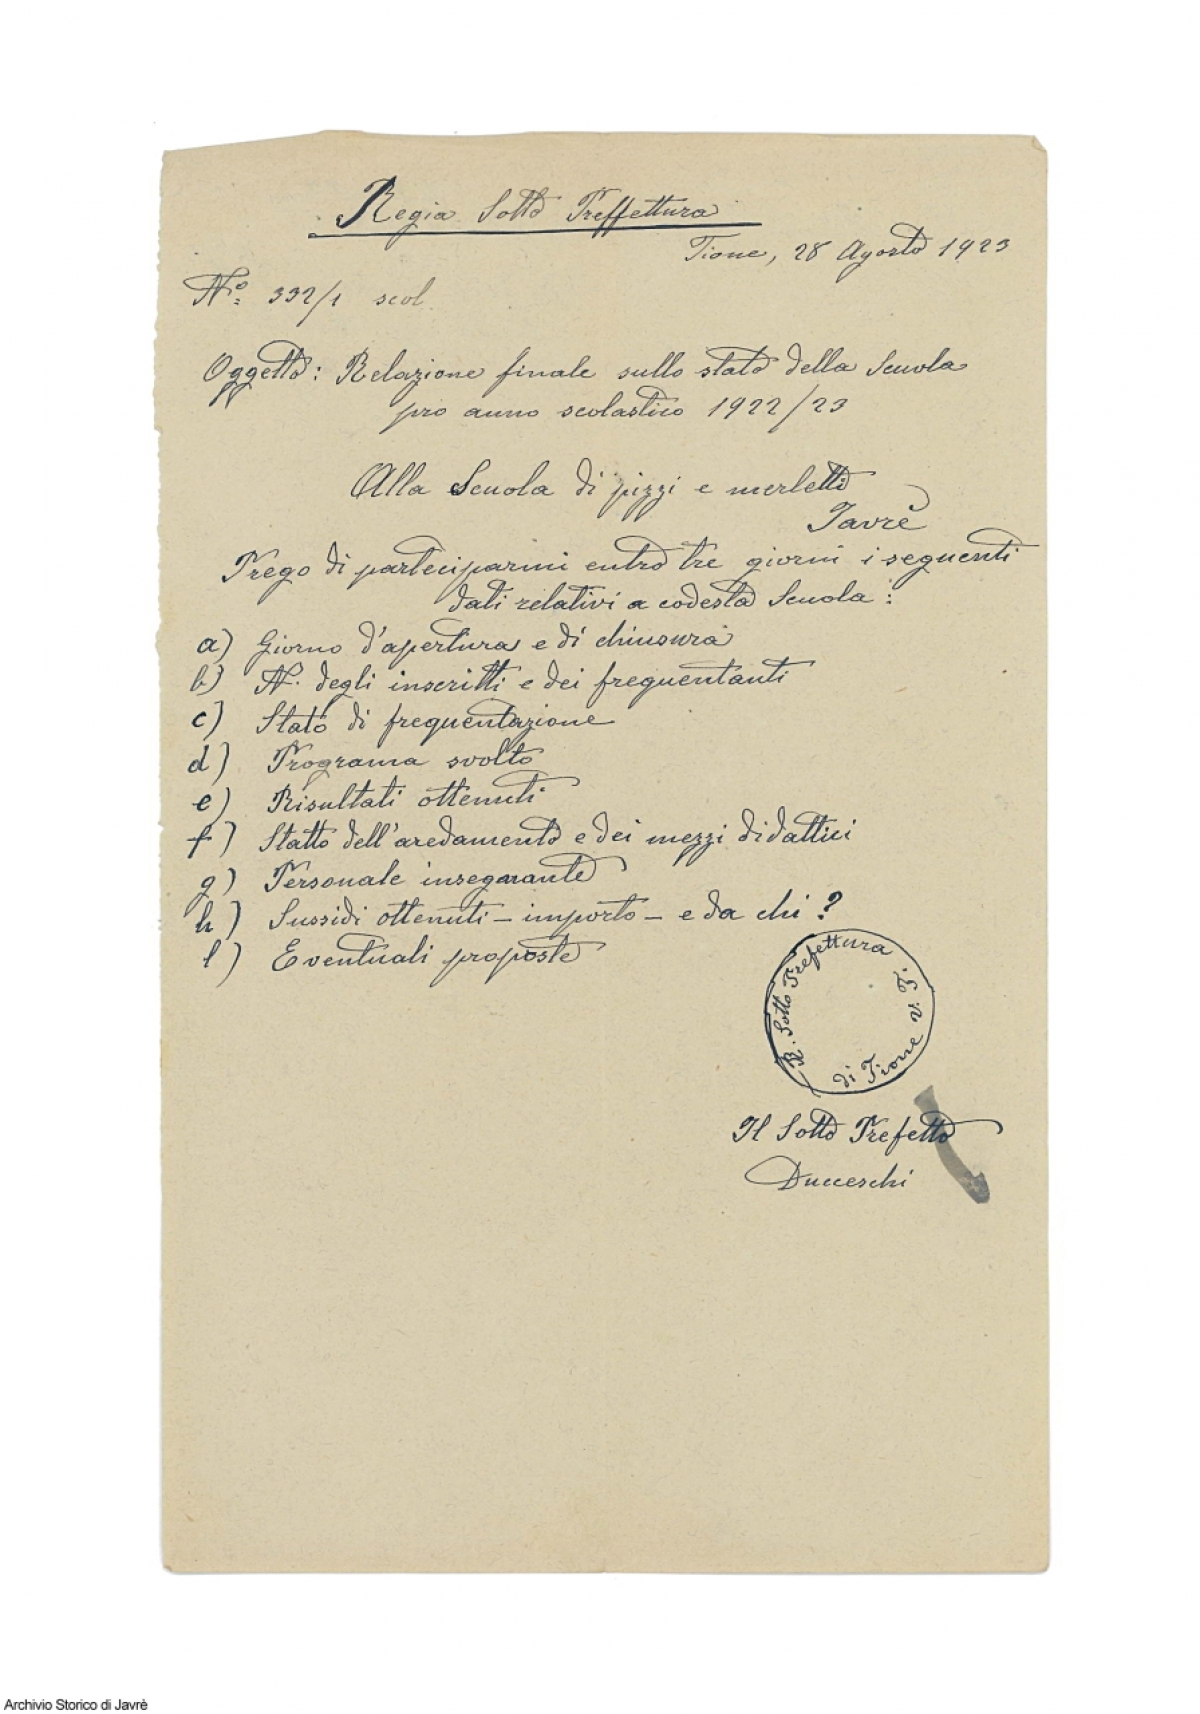 Regia Sotto Preffettura
Tione, 28 Agosto 1923
No. 332/1 scol.
Oggetto: Relazione finale sullo stato della Scuola
pro anno scolastico 1922/23
Alla Scuola di pizzi e merletti
Javrè
Prego di parteciparmi entro tre giorni i seguenti
dati relativi a codesta Scuola:
a) Giorno d'apertura e di chiusura
b) N. degli inscritti e dei frequentanti
c) Stato di frequentazione
d) Programa svolto
e) Risultati ottenuti
f) Statto dell'aredamento e dei mezzi didattici
g) Personale insegnante
h) Sussidi ottenuti - importo - e da chi?
l) Eventuali proposte
R. Sotto Prefettura
di Tione v. T.
Il Sotto Prefetto
Ducceschi
Archivio Storico di Javrè